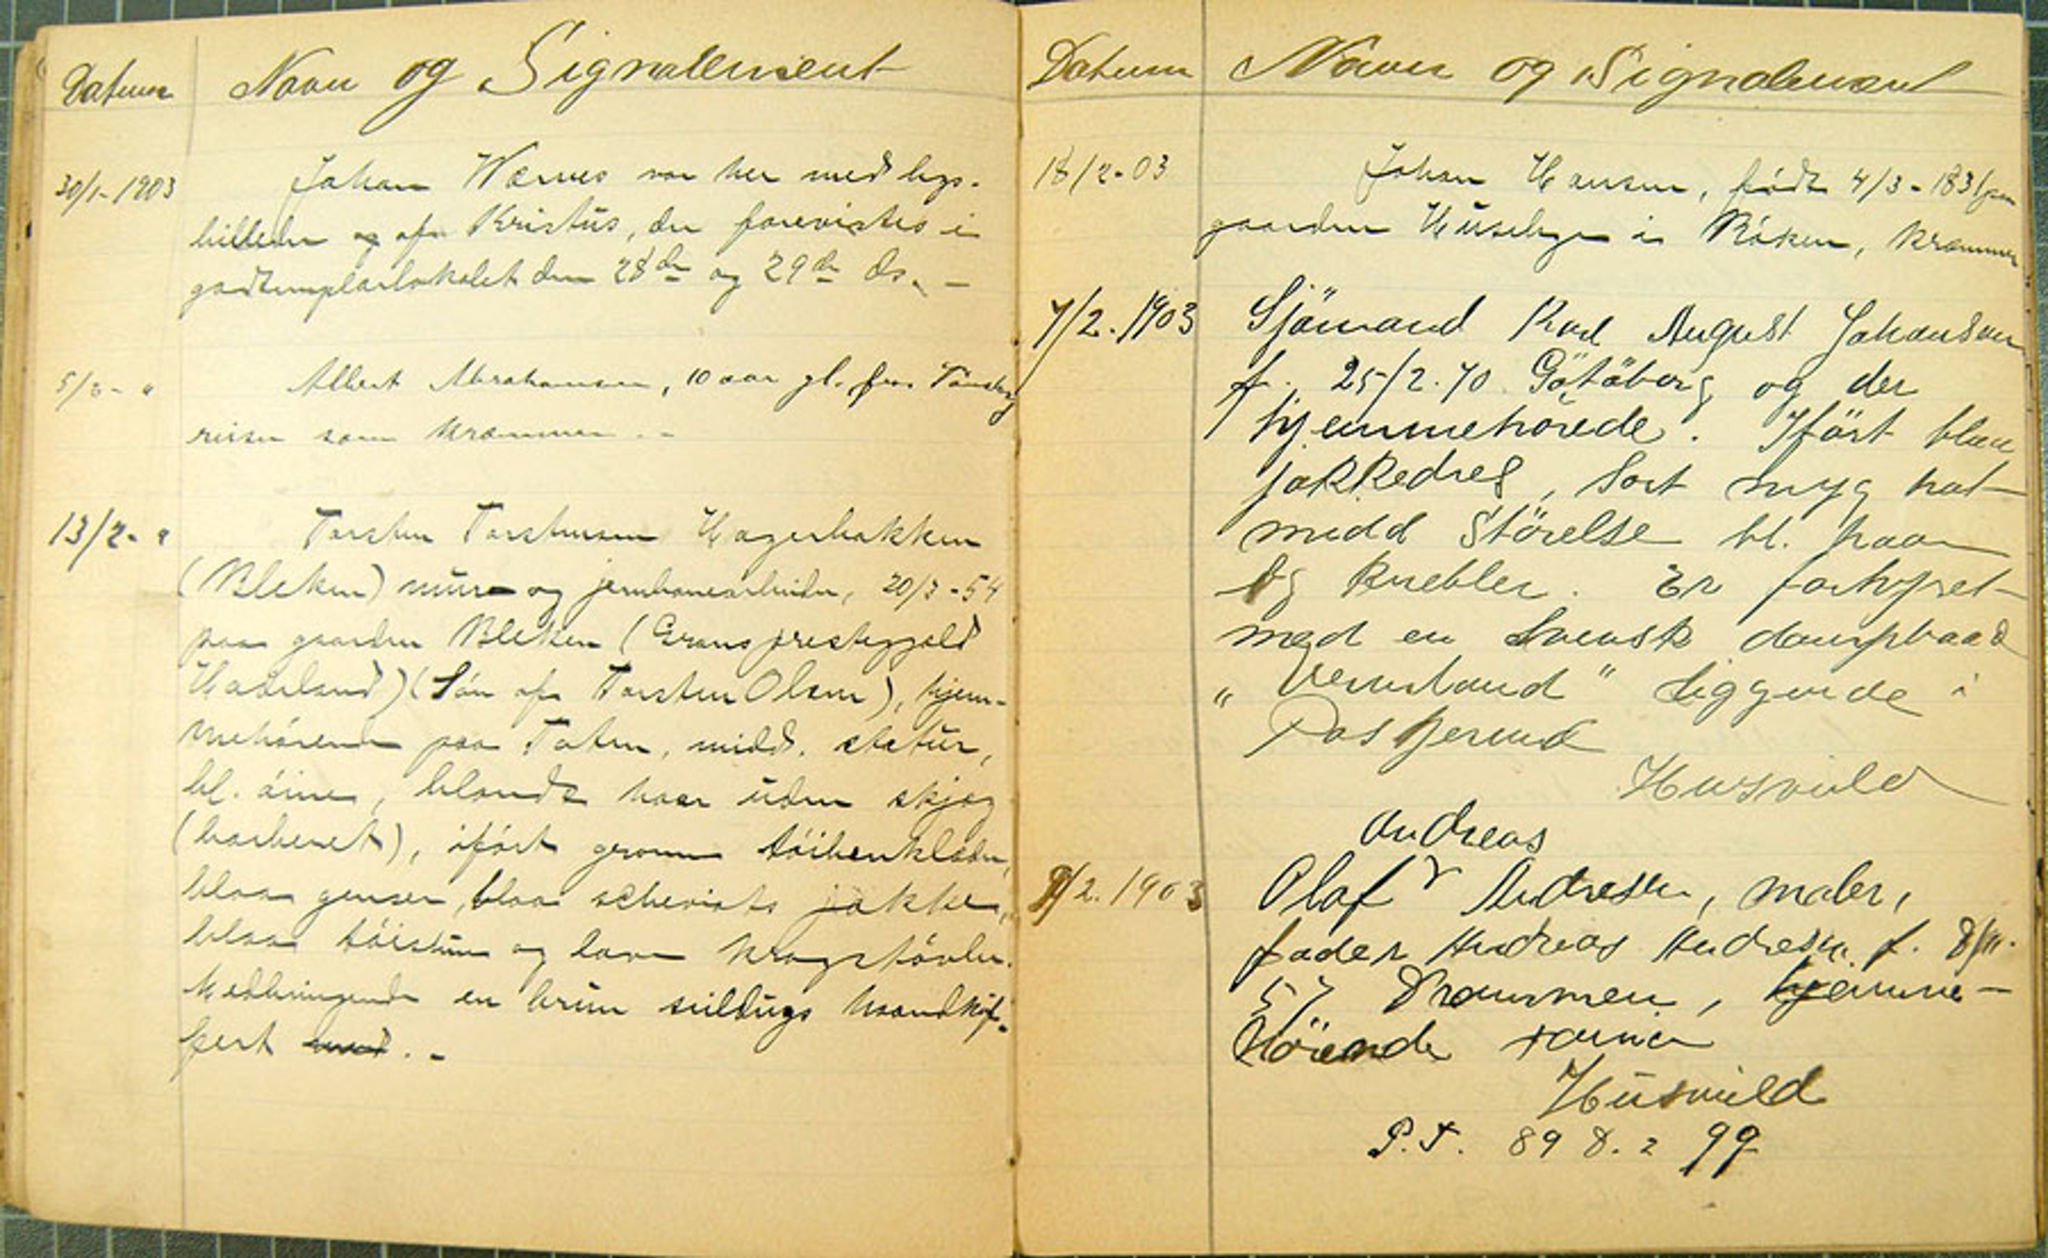 Datum Navn og Signalement
30/1-1903 Johan Wærnes var her med lys-
billeder og af Kristus, der forevistes i
godtemplarlokalet den 28de og 29de ds. -
5/2- " Albert Abrahamsen, 10 aar gl. fra Tønsberg
reiser som kræmmer. -
13/2- " Torsten Torstensen Hagerbakken
(Bleken) mur- og jernbanearbeider, 20/3-54
paa gaarden Bleken (Grans prestegjeld
Hadeland) (Søn af Torsten Olsen), hjem-
mehørende paa Toten, midd. statur,
bl. øine, blondt haar uden skjæg
(barberet), iført graa tøibenklæder,
blaa genser, blaa scheviots jakke,
blaa tøislue og lave kragstøvler.
Medbringende en brun seildugs haandkof-
fert med. -
Datum Navn og Signalement
18/2-03 Johan Hansen, født 4/3-1831 paa
gaarden Huseby i Røken, kræmmer
7/2.1903 Sjömand Karl August Johanson
f. 25/2.70 Götöborg og der
hjemmehörede. Ifört blaa
jakkedres, sort myg hat
midd störelse bl. haar
og knebler. Er forhyret
med en svensk dampbaad
" Vermland " liggende i
Posgerund
Husvild
Andreas
9/2.1903 Olaf Andresen, maler,
fader Andreas Andresen f. 8/11.
57 Drammen, hjemme-
hörende
Husvild
P.T. 89 8.2 99